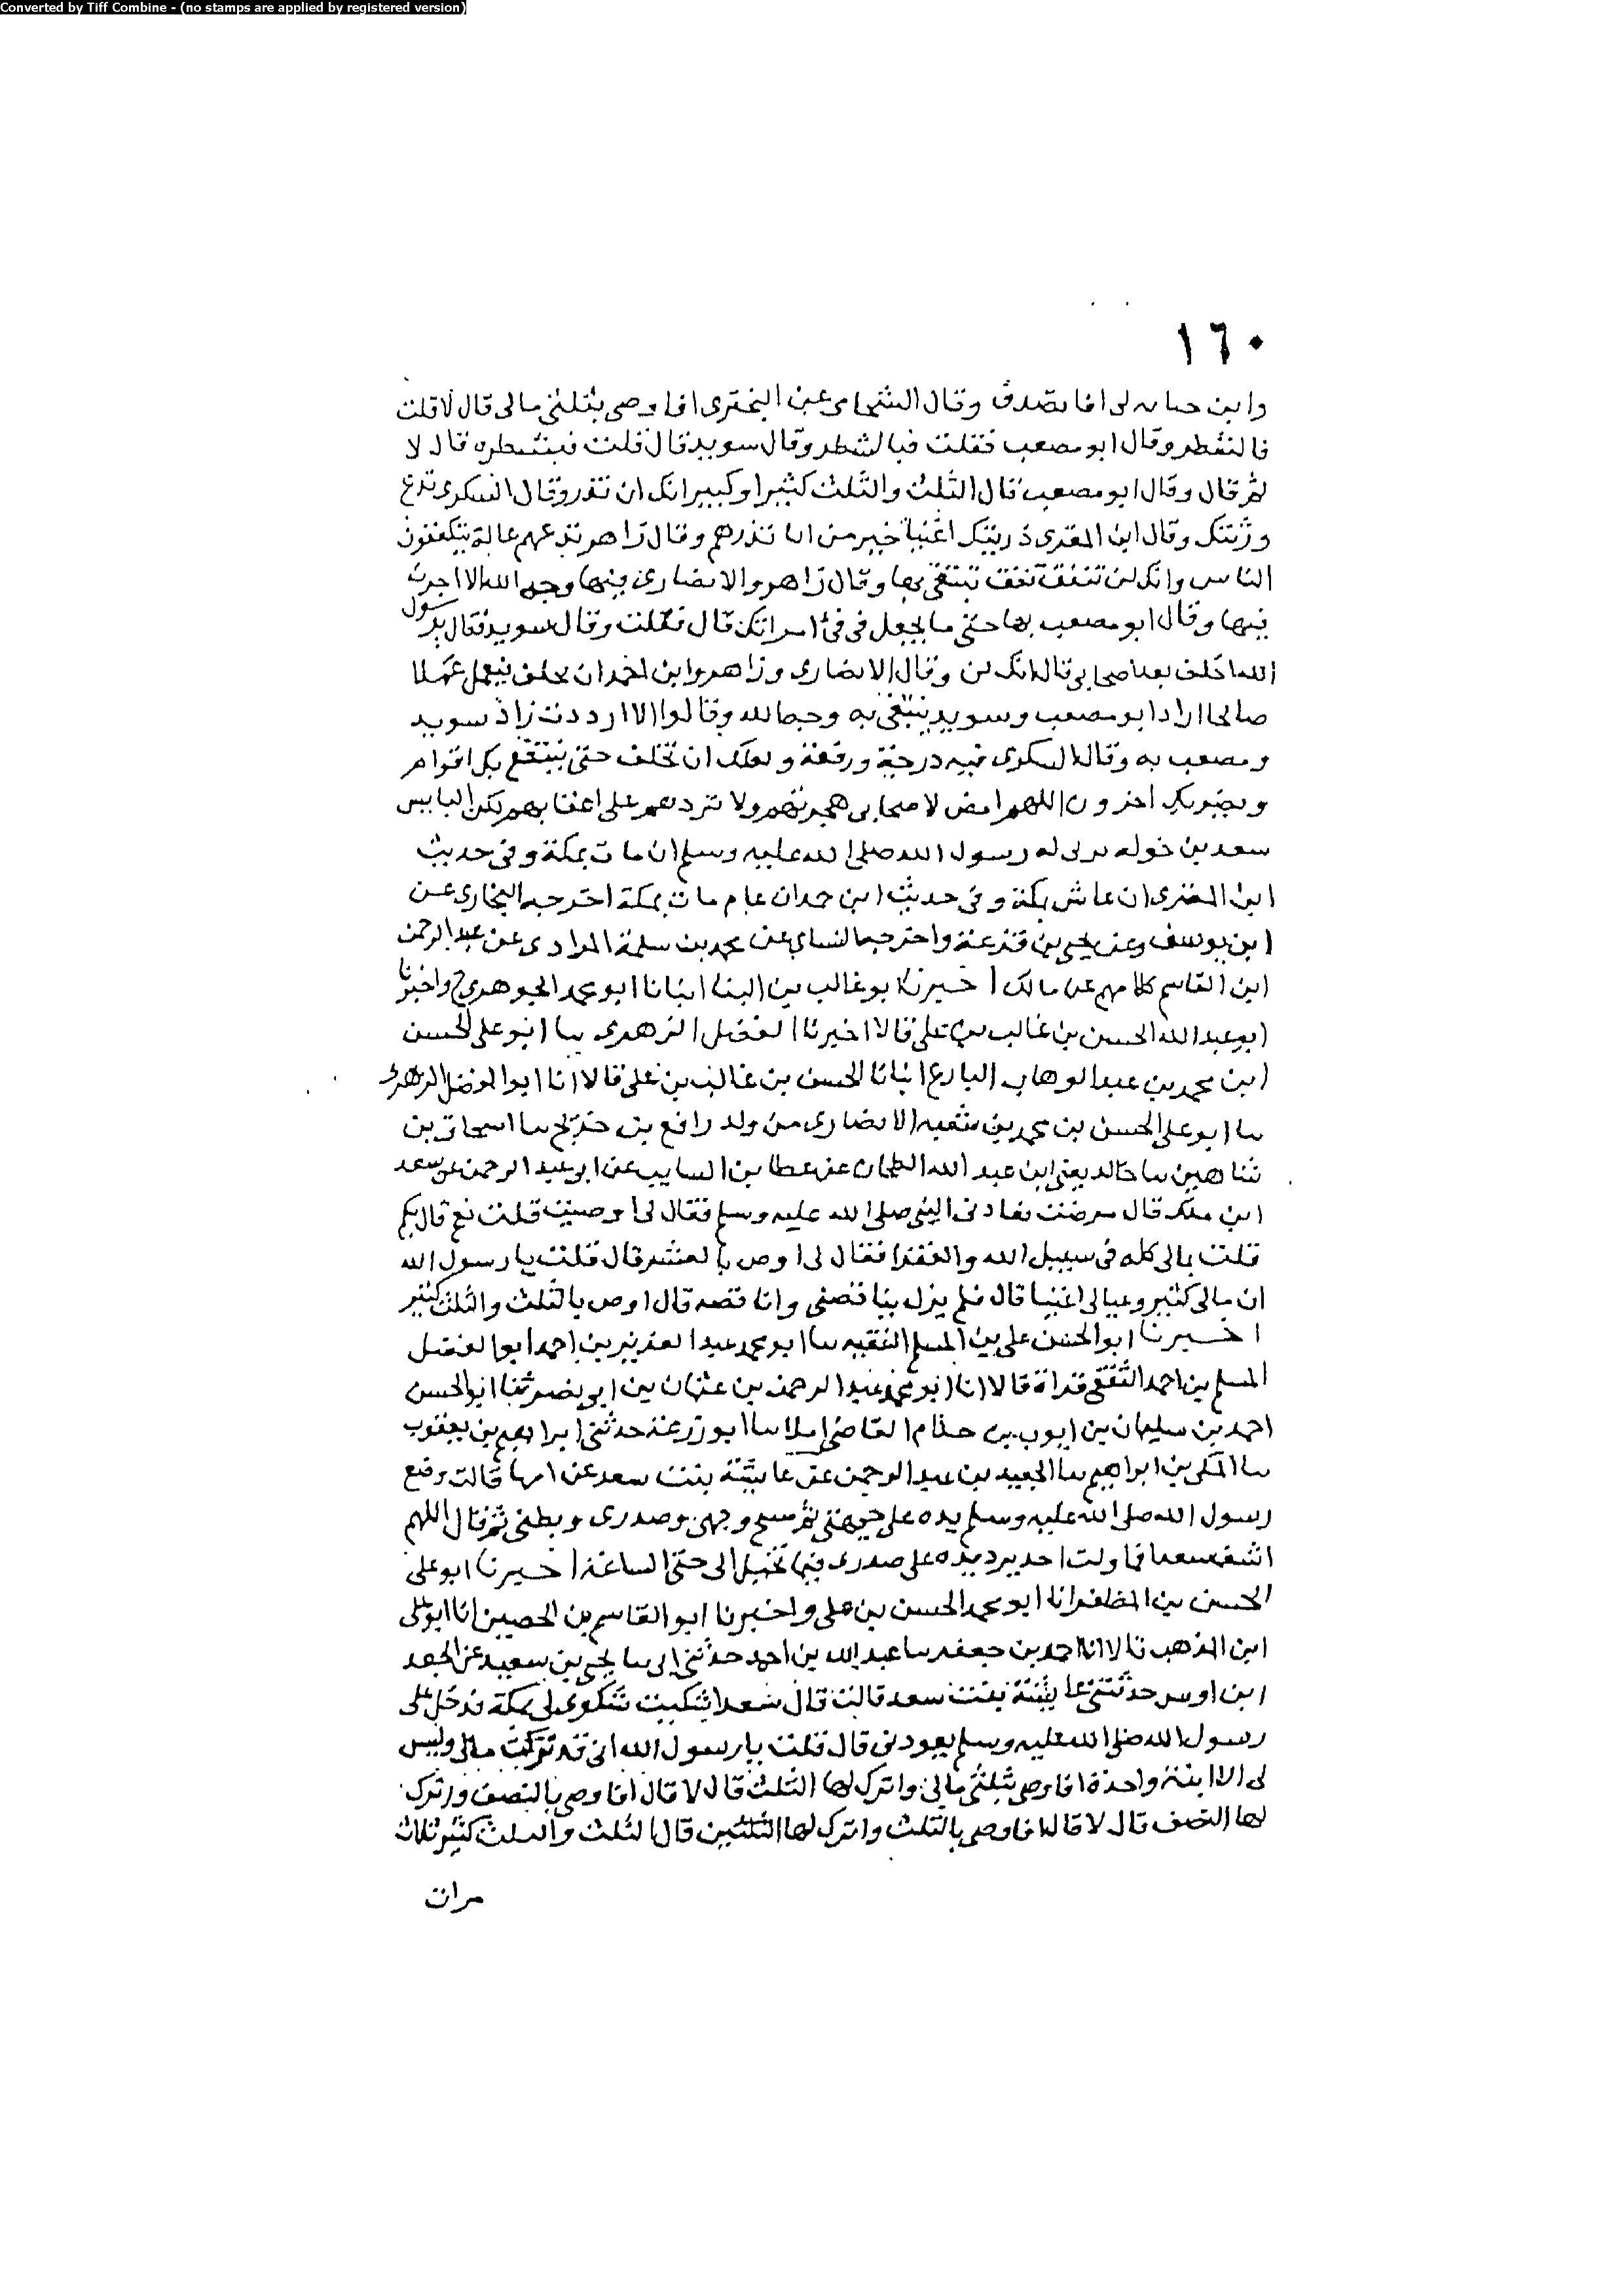 Converted by Tiff Combine - (no stamps are applied by registered version)
١٦٠
وابن لى افاتصدق وقال الشحامى عن البحترى افاوصى بثلثى مالى قال لا قلت
فالشطر وقال ابو مصعب فقلت فبالشطر وقال سويد قال قلت فبشطره قال لا
ثم قال وقال ابو مصعب قال الثلث والثلث كثير او كبير انك ان تذر وقال السكرى تدع
ورثتك وقال ابن المقرى ذريتك اغنيا خير من ان تذرهم وقال زاهر تدعهم عالة يتكففون
الناس وانك لن تنفق نفقة تبتغى بها وقال زاهر والانصارى فيها وجه الله الا اجرت
فيها وقال ابو مصعب بها حتى ما تجعل فى فى امراتك قال فقلت وقال سويد فقال يرسول
الله اخلف بعد اصحابى قال انك لن وقال الانصارى وزاهر وابن ان تخلف فتعمل عملا
صالحا زاد ابو مصعب وسويد تبتغى به وجه الله وقالوا الا ازددت زاد سويد
ومصعب به وقال السكرى فيه درجة ورفعة ولعلك ان تخلف حتى ينتفع بك اقوام
ويضر بك اخرون اللهم امض لاصحابى هجرتهم ولا تردهم على اعقابهم لكن البايس
سعد بن خوله يرثى له رسول الله صلى الله عليه وسلم ان مات بمكة وفى حديث
ابن المقرى ان عاش بمكة وفى حديث ابن حمدان عام مات بمكة اخرجه البخارى عن
ابن يوسف وعن يحيى بن قزعة واخرجه النساى عن محمد بن سلمة المرادى عن عبد الرحمن
ابن القاسم كلامهم عن مالك اخبرنا ابو غالب بن البنا انبانا ابو محمد الجوهرى ح واخبرنا
ابو عبد الله الحسن بن غالب بن على قالا اخبرنا الفضل الزهرى نا ابو على الحسن
ابن محمد بن عبد الوهاب البارع انبانا الحسن بن غالب بن على قالا انا ابو الفضل الزهرى
نا ابو على الحسن بن محمد بن شعبه الانصارى من ولد رافع بن خديج نا اسحاق بن
شاهين نا خالد يعنى ابن عبد الله الطحان عن عطا بن السايب عن ابو عبد الرحمن عن سعد
ابن ملك قال مرضت فعادنى النبى صلى الله عليه وسلم فقال لى اوصيت قلت نعم قال بكم
قلت بمالى كله فى سبيل الله والفقرا فقال لى اوص بالعشر قال قلت يا رسول الله
ان مالى كثير وعيالى اغنيا قال فلم يزل يناقصنى واناقصه قال اوص بالثلث والثلث كثير
اخبرنا ابو الحسن على بن المسلم الفقيه نا ابو محمد عبد العزيز بن احمد ابو الفضل
المسلم بن احمد الثقفى قراة قالا انا ابو محمد عبد الرحمن بن عثمان بن ابى نصر ثنا ابو الحسن
احمد بن سليمان بن ايوب بن حذام القاضى املا نا ابو زرعة حدثنى ابراهيم بن يعقوب
نا المكى بن ابراهيم نا الجعيد بن عبد الرحمن عن عايشة بنت سعد عن ابيها قالت وضع
رسول الله صلى الله عليه وسلم يده على جبهتى ثم مسح وجهى وصدرى وبطنى ثم قال اللهم
اشف سعدا فما زلت اجد برد يده على صدرى فيما تخيل الى حتى الساعة اخبرنا ابو على
الحسن بن المظفر انا ابو محمد الحسن بن على واخبرنا ابو القاسم بن الحصين انا ابو على
ابن المذهب قالا انا احمد بن جعفر نا عبد الله بن احمد حدثنى ابى نا يحيى بن سعيد عن الجعد
ابن اوس حدثتنى عايشة بنت سعد قالت قال سعد اشتكيت شكوى لى بمكة فدخل على
رسول الله صلى الله عليه وسلم يعودنى قال قلت يا رسول الله انى قد تركت مالى وليس
لى الا ابنة واحدة افاوصى بثلثى مالى واترك لها الثلث قال لا قال افاوصى بالنصف واترك
لها النصف قال لا قال افاوصى بالثلث واترك لها الثلثين قال الثلث والثلث كثير ثلاث
مرات